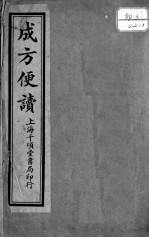 成方便讀
上海千頃堂書局印行